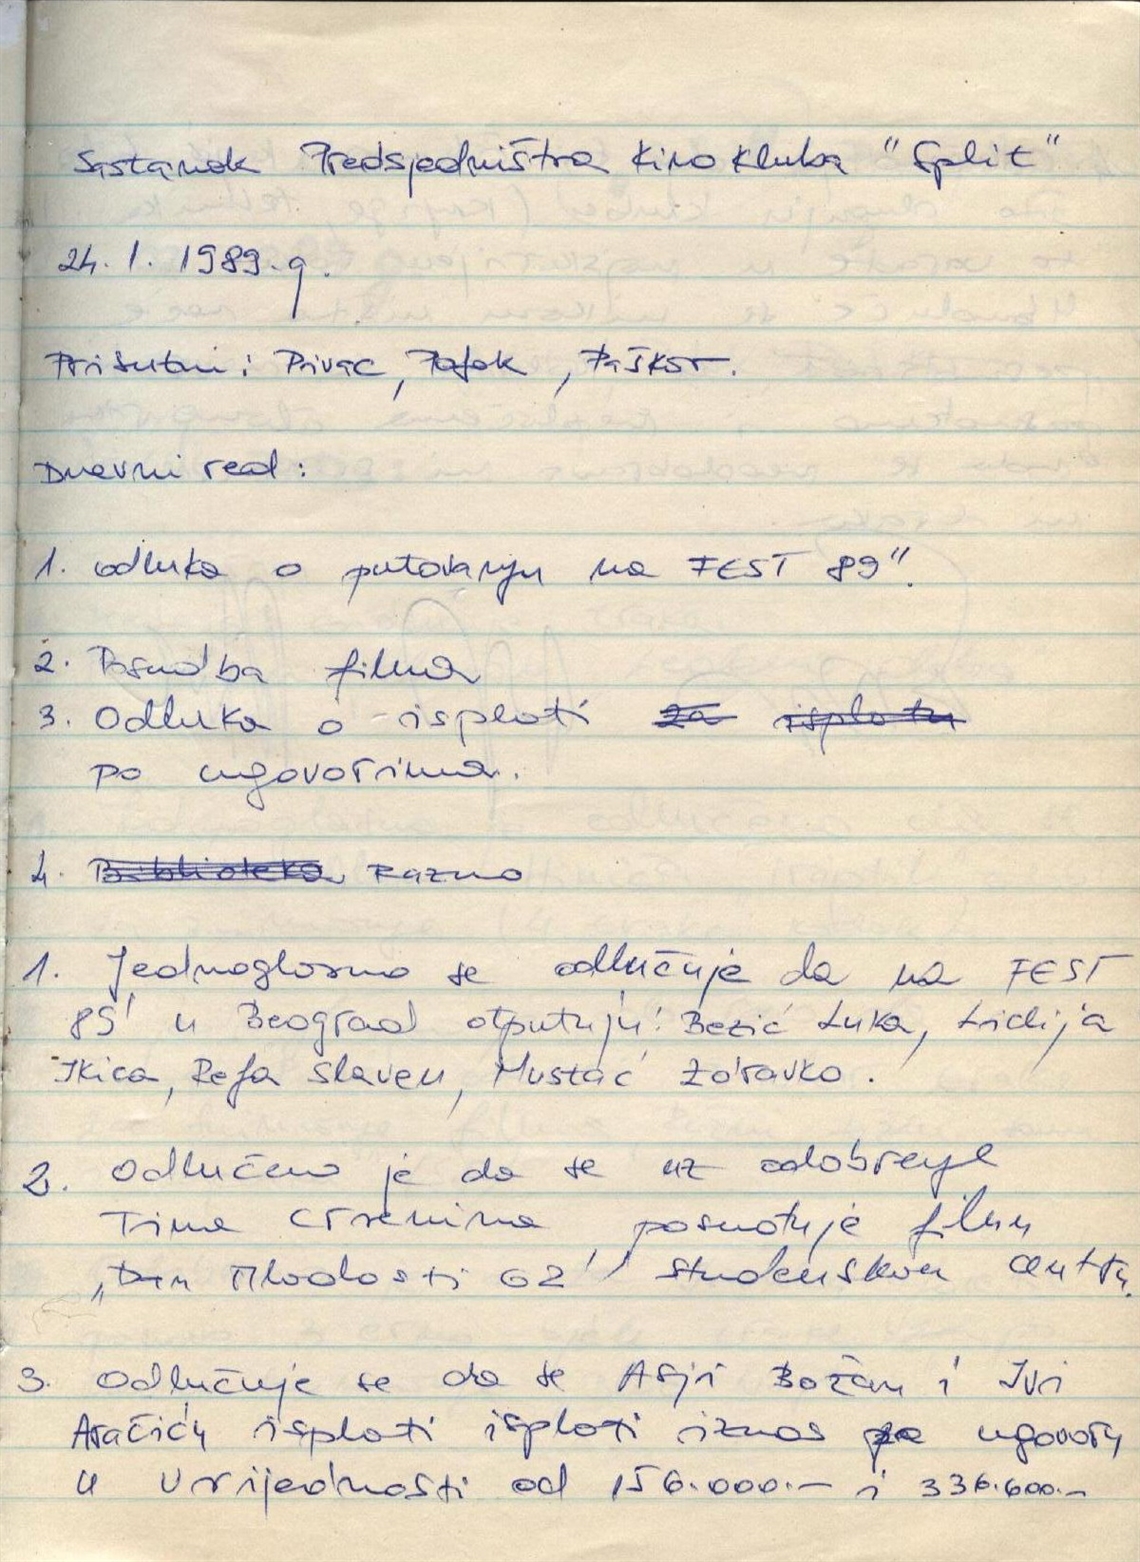 Sastanak Predsjedništva Kino kluba "Split"
24. 1. 1989. g.
Prisutni: Pivac, Fafok, Paškor.
Dnevni red:
1. odluka o putovanju na FEST 89".
2. Posudba filma
3. Odluka o isplati za isplatu
po ugovorima.
4. Biblioteka Razno
1. Jednoglasno se odlučuje da na FEST
89' u Beograd otputuju: Bezić Luka, Lidija
Ikica, Refa Slaven, Mustać Zdravko.
2. Odlučeno je da se uz odobrenje
Tima Crnenina posuđuje film
„Dan Mladosti 62" studenskom centru.
3. Odlučuje se da se Asji Božan i Ivi
Aračiću isplati isplati iznos po ugovoru
u vrijednosti od 156.000.- i 336.600.-